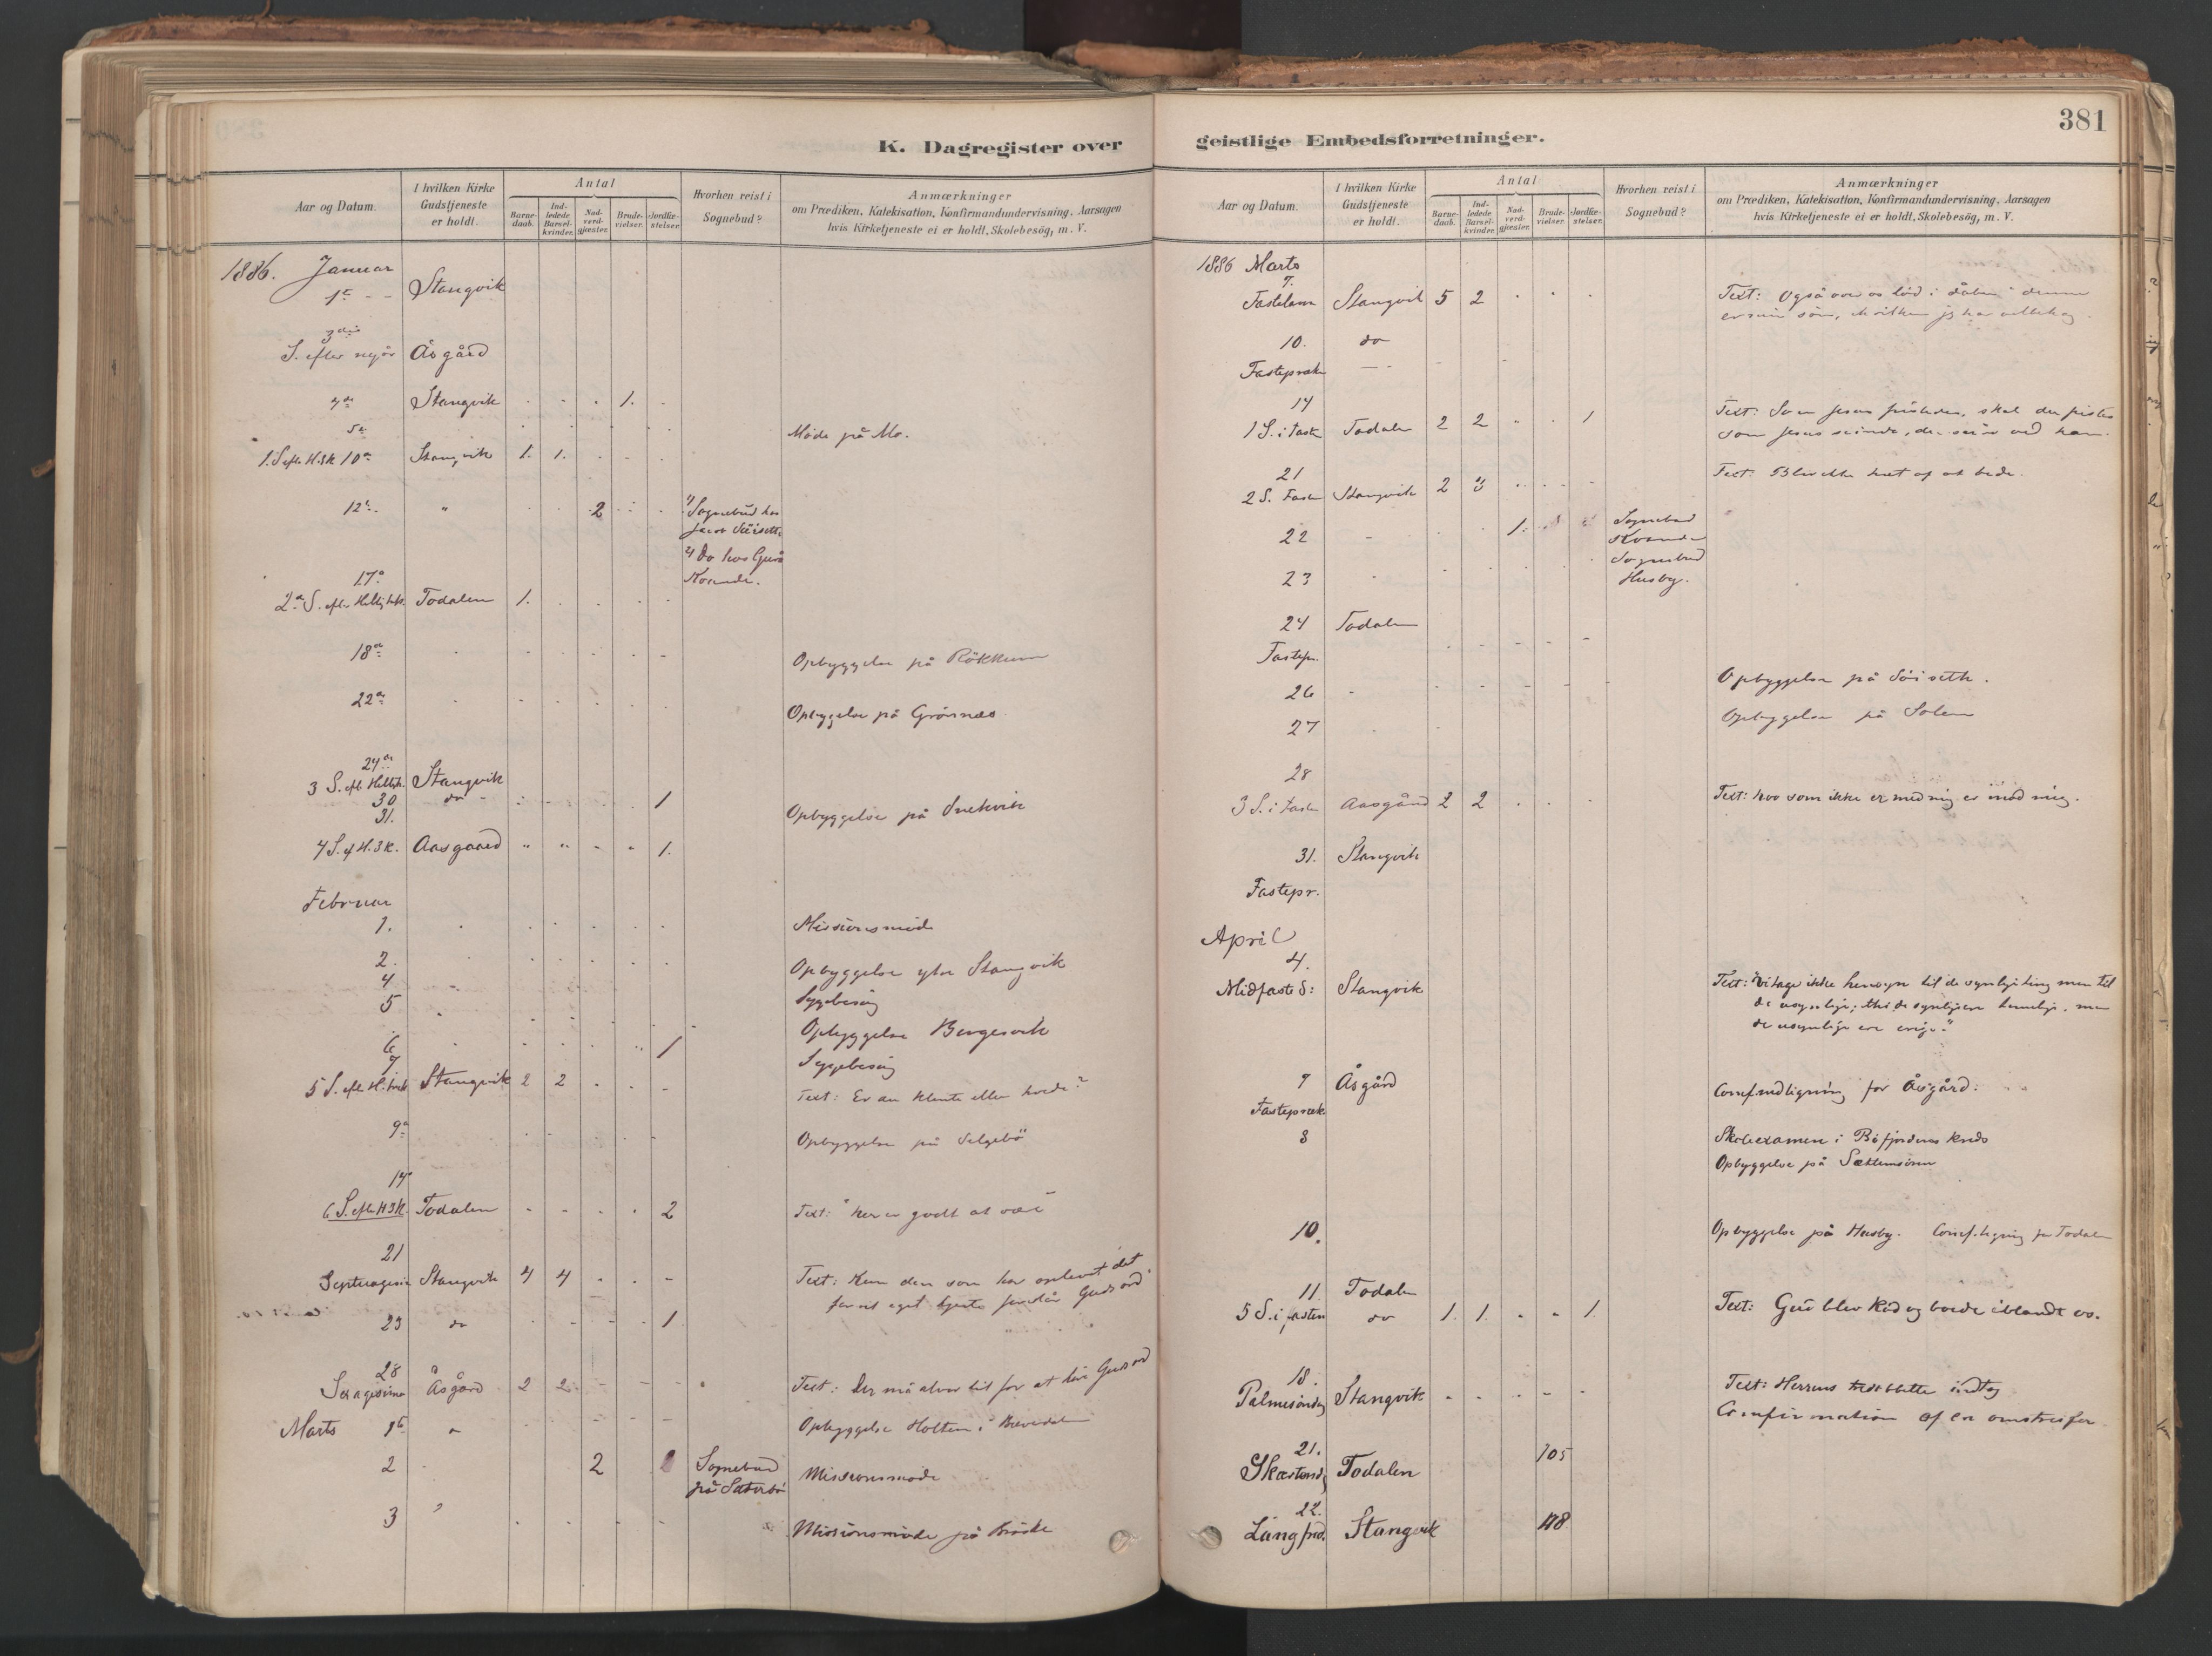 K. Dagregister over
Aar og Datum.
I hvilken Kirke Gudstjeneste er holdt.
Antal
Barnedaab.
Indledede Barselkvinder.
Nadverdgjæster.
Brudevielser.
Jordfæstelser.
Hvorhen reist i Sognebud?
Anmærkninger
om Prædiken, Katekisation, Konfirmandundervisning, Aarsagen
hvis Kirketjeneste ei er holdt, Skolebesög, m. V.
1886. Januar
1ste Stangvik
3die
S. efter nyår Åsgård
Stangvik 1.
5te Møde på Mo.
1. S. eft. H.3K. 10de Stangvik 1. 1.
12te " 2 1) Sognebud hos
Jacob
2) Do hos Guro
Kvande.
17de
2den S. eft. Hellig Todalen 1.
18de Opbyggelse på Rökkum
22de Opbyggelse på Grönnæs
24de
3 S. eft. Hellig Stangvik
30 do 1
31. Opbyggelse på
4 S. ef H.3K. Aasgaard " " 1.
Februar
1. Missionsmøde
2. Opbyggelse Stangvik
4 Sygebesög
5 Opbyggelse
6 1 Sygebesög
7
5 S. eft. H. Stangvik 2 2 Text: Er du klinte eller hvede?
9de Opbyggelse på
14
6 S. eft H3K. Todalen 2 Text: "her er godt at være"
21
Septuagesima Stangvik 4 4 Text: Kun den som har oplevet det
for sit eget hjerte forstår Guds ord
23 do 1
28
Sexagesima Åsgård 2 2 Text: Der må alvor til for at höre Guds ord
Marts 1ste " Opbyggelse Holten i
2 2 Sognebud Missionsmøde
på Sæterbö
3 " Missionsmøde på
381
geistlige Embedsforretninger.
Aar og Datum.
I hvilken Kirke Gudstjeneste er holdt.
Antal
Barnedaab.
Indledede Barselkvinder.
Nadverdgjæster.
Brudevielser.
Jordfæstelser.
Hvorhen reist i Sognebud?
Anmærkninger
om Prædiken, Katekisation, Konfirmandundervisning, Aarsagen
hvis Kirketjeneste ei er holdt, Skolebesög, m. V.
1886 Marts
7.
Fastelavn Stangvik 5 2 Text: Også over os lød i dåben "denne
er min sön, i hvilken jeg har velbehag.
10. do
Fastepræk
14
1 S. i faste Todalen 2 2 1 Text: Som Jesus fristedes, skal du fristes
som Jesus
21
2 S. Faste Stangvik 2 3 Text: Bliv ikke træt af at bede.
22 1. Sognebud
Kvande
23 Sognebud
Husby.
24 Todalen
Fastepr.
26 Opbyggelse på
27 Opbyggelse på Solem
28
3 S. i faste Aasgård 2 2 Text: hvo som ikke er med mig er imod mig.
31. Stangvik
Fastepr.
April
4.
Midfaste S: Stangvik Text: "Vi tage ikke hensyn til de synlige ting men til
de usynlige; thi de synlige ere timelige, men
de usynlige ere evige."
7 Åsgård
Fastepræk Åsgård:
8 Skoleexamen i Böfjordens kreds
Opbyggelse på
10. Opbyggelse på Husby. Todalen
11. Todalen
5 S. i fasten do 1. 1. 1. Text: Gud blev Kiöd og boede iblandt os.
18.
Palmesöndag Stangvik Text: Herrens indtog
Confirmation af en
21.
Skærtorsd. Todalen 105
22.
Langfred. Stangvik 118